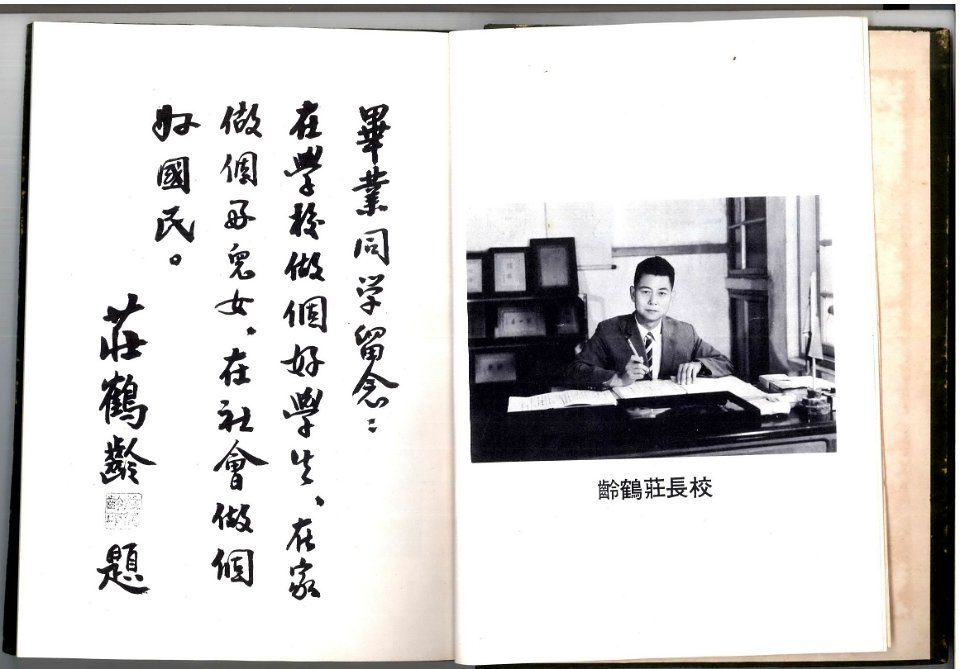 畢業同学留念：
在學校做個好學生、在家
做個好兒女、在社會做個
好國民。
莊鶴齡題
齡鶴莊長校